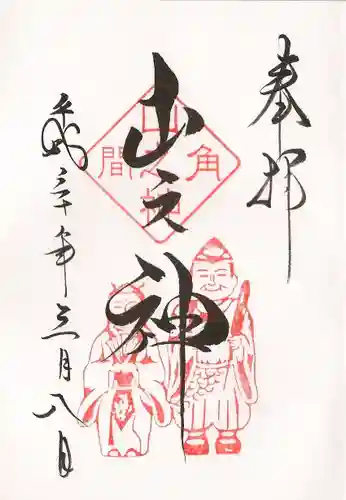 奉拝
角
山之神
間
山之神
平成三十年三月八日